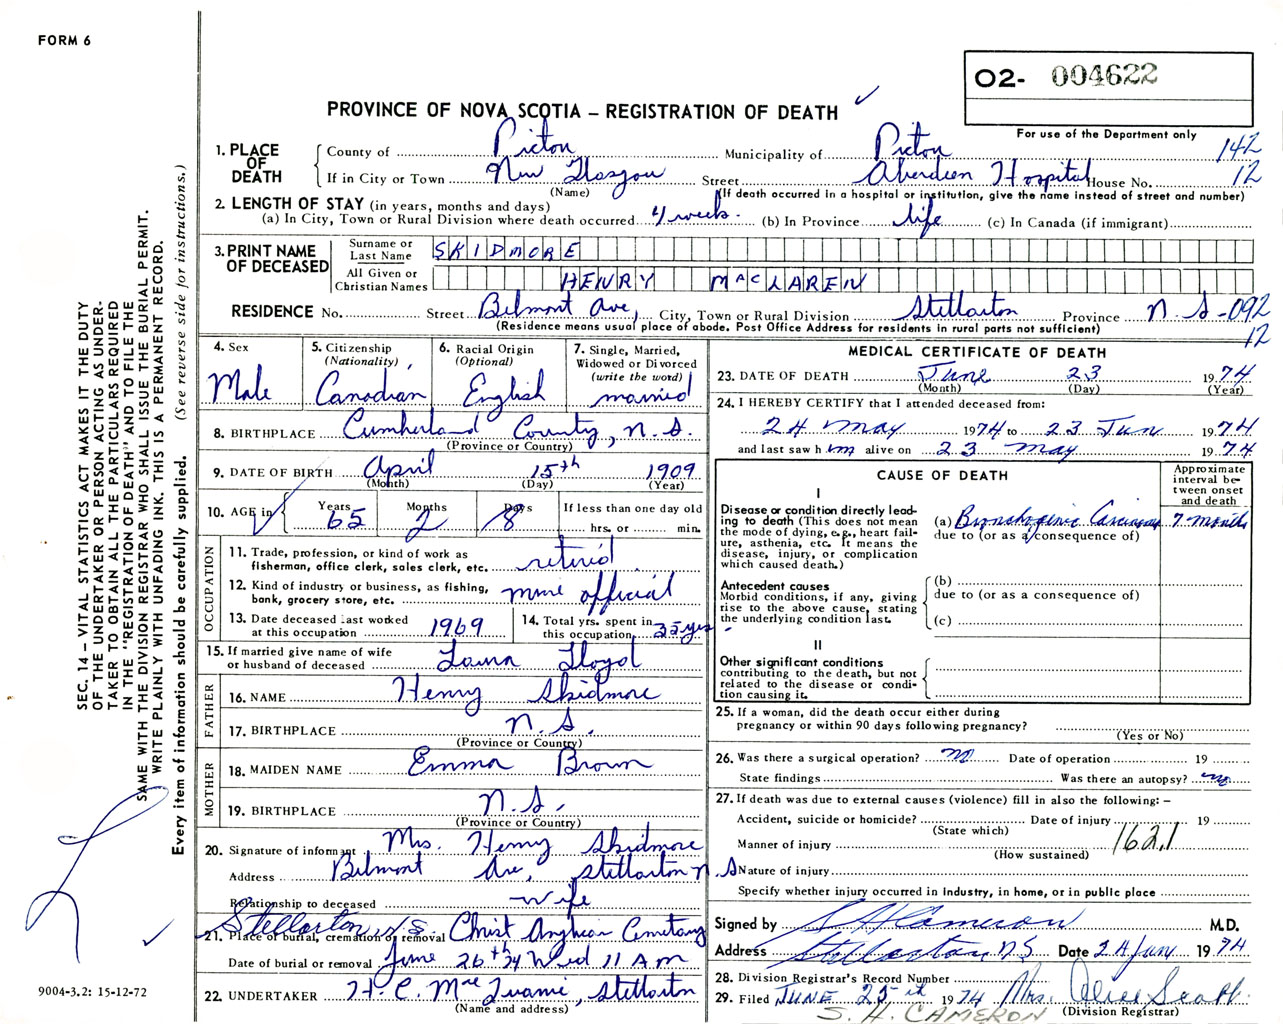 FORM 6
O2- 004622
PROVINCE OF NOVA SCOTIA – REGISTRATION OF DEATH ✓
For use of the Department only
142
12
1. PLACE OF DEATH
County of Pictou Municipality of Pictou
If in City or Town New Glasgow Street Aberdeen Hospital House No.
(Name) (If death occurred in a hospital or institution, give the name instead of street and number)
2. LENGTH OF STAY (in years, months and days)
(a) In City, Town or Rural Division where death occurred 4 weeks. (b) In Province life (c) In Canada (if immigrant)
3. PRINT NAME OF DECEASED
Surname or Last Name SKIDMORE
All Given or Christian Names HENRY MacLAREN
RESIDENCE No. Street Belmont Ave, City, Town or Rural Division Stellarton Province N S -092
(Residence means usual place of abode. Post Office Address for residents in rural parts not sufficient)
12
4. Sex Male
5. Citizenship (Nationality) Canadian
6. Racial Origin (Optional) English
7. Single, Married, Widowed or Divorced (write the word) married
8. BIRTHPLACE Cumberland County, N.S.
(Province or Country)
9. DATE OF BIRTH April 15th 1909
(Month) (Day) (Year)
10. AGE in Years 65 Months 2 Days 8 If less than one day old hrs. or min.
OCCUPATION
11. Trade, profession, or kind of work as fisherman, office clerk, sales clerk, etc. retired
12. Kind of industry or business, as fishing, bank, grocery store, etc. mine official
13. Date deceased last worked at this occupation 1969
14. Total yrs. spent in this occupation 35 yrs
15. If married give name of wife or husband of deceased Laura Lloyd
FATHER
16. NAME Henry Skidmore
17. BIRTHPLACE N.S.
(Province or Country)
MOTHER
18. MAIDEN NAME Emma Brown
19. BIRTHPLACE N.S.
(Province or Country)
20. Signature of informant Mrs. Henry Skidmore
Address Belmont Ave, Stellarton N.S
Relationship to deceased wife
Stellarton N.S.
21. Place of burial, cremation or removal Christ Anglican Cemetary
Date of burial or removal June 26th 74 Wed 11 AM
22. UNDERTAKER H.C. , Stellarton
(Name and address)
MEDICAL CERTIFICATE OF DEATH
23. DATE OF DEATH June 23 1974
(Month) (Day) (Year)
24. I HEREBY CERTIFY that I attended deceased from:
24 May 1974 to 23 Jun 1974
and last saw him alive on 23 May 1974
CAUSE OF DEATH
Approximate interval between onset and death
I
Disease or condition directly leading to death (This does not mean the mode of dying, e.g., heart failure, asthenia, etc. It means the disease, injury, or complication which caused death.)
(a) Bronchogenic Carcinoma 7 months
due to (or as a consequence of)
Antecedent causes
Morbid conditions, if any, giving rise to the above cause, stating the underlying condition last.
(b)
due to (or as a consequence of)
(c)
II
Other significant conditions contributing to the death, but not related to the disease or condition causing it.
25. If a woman, did the death occur either during pregnancy or within 90 days following pregnancy?
(Yes or No)
26. Was there a surgical operation? no Date of operation 19
State findings Was there an autopsy? no
27. If death was due to external causes (violence) fill in also the following: –
Accident, suicide or homicide? Date of injury 19
(State which)
Manner of injury 162.1
(How sustained)
Nature of injury
Specify whether injury occurred in Industry, in home, or in public place
Signed by S H Cameron M.D.
Address Stellarton N.S. Date 24 June 1974
28. Division Registrar's Record Number
29. Filed JUNE 25th 1974 Mrs. Alice Scott.
(Division Registrar)
S. H. CAMERON
SEC. 14 – VITAL STATISTICS ACT MAKES IT THE DUTY
OF THE UNDERTAKER OR PERSON ACTING AS UNDER-
TAKER TO OBTAIN ALL THE PARTICULARS REQUIRED
IN THE "REGISTRATION OF DEATH" AND TO FILE THE
SAME WITH THE DIVISION REGISTRAR WHO SHALL ISSUE THE BURIAL PERMIT.
WRITE PLAINLY WITH UNFADING INK. THIS IS A PERMANENT RECORD.
Every item of information should be carefully supplied. (See reverse side for instructions.)
9004-3.2: 15-12-72